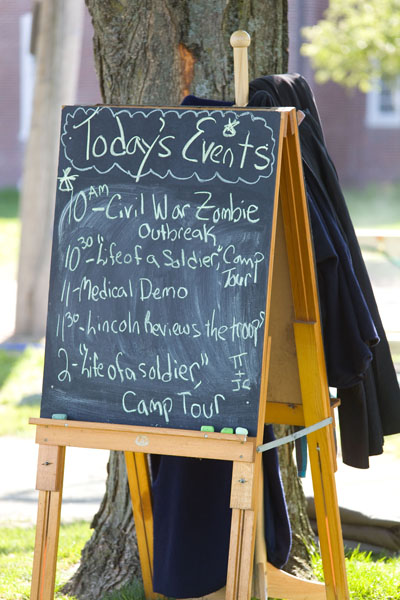 Today's Events
10AM-Civil War Zombie
Outbreak
10:30 "Life of a Soldier," Camp
Tour
11-Medical Demo
11:30-Lincoln Reviews the troops
2-"Life of a soldier,"
Camp Tour